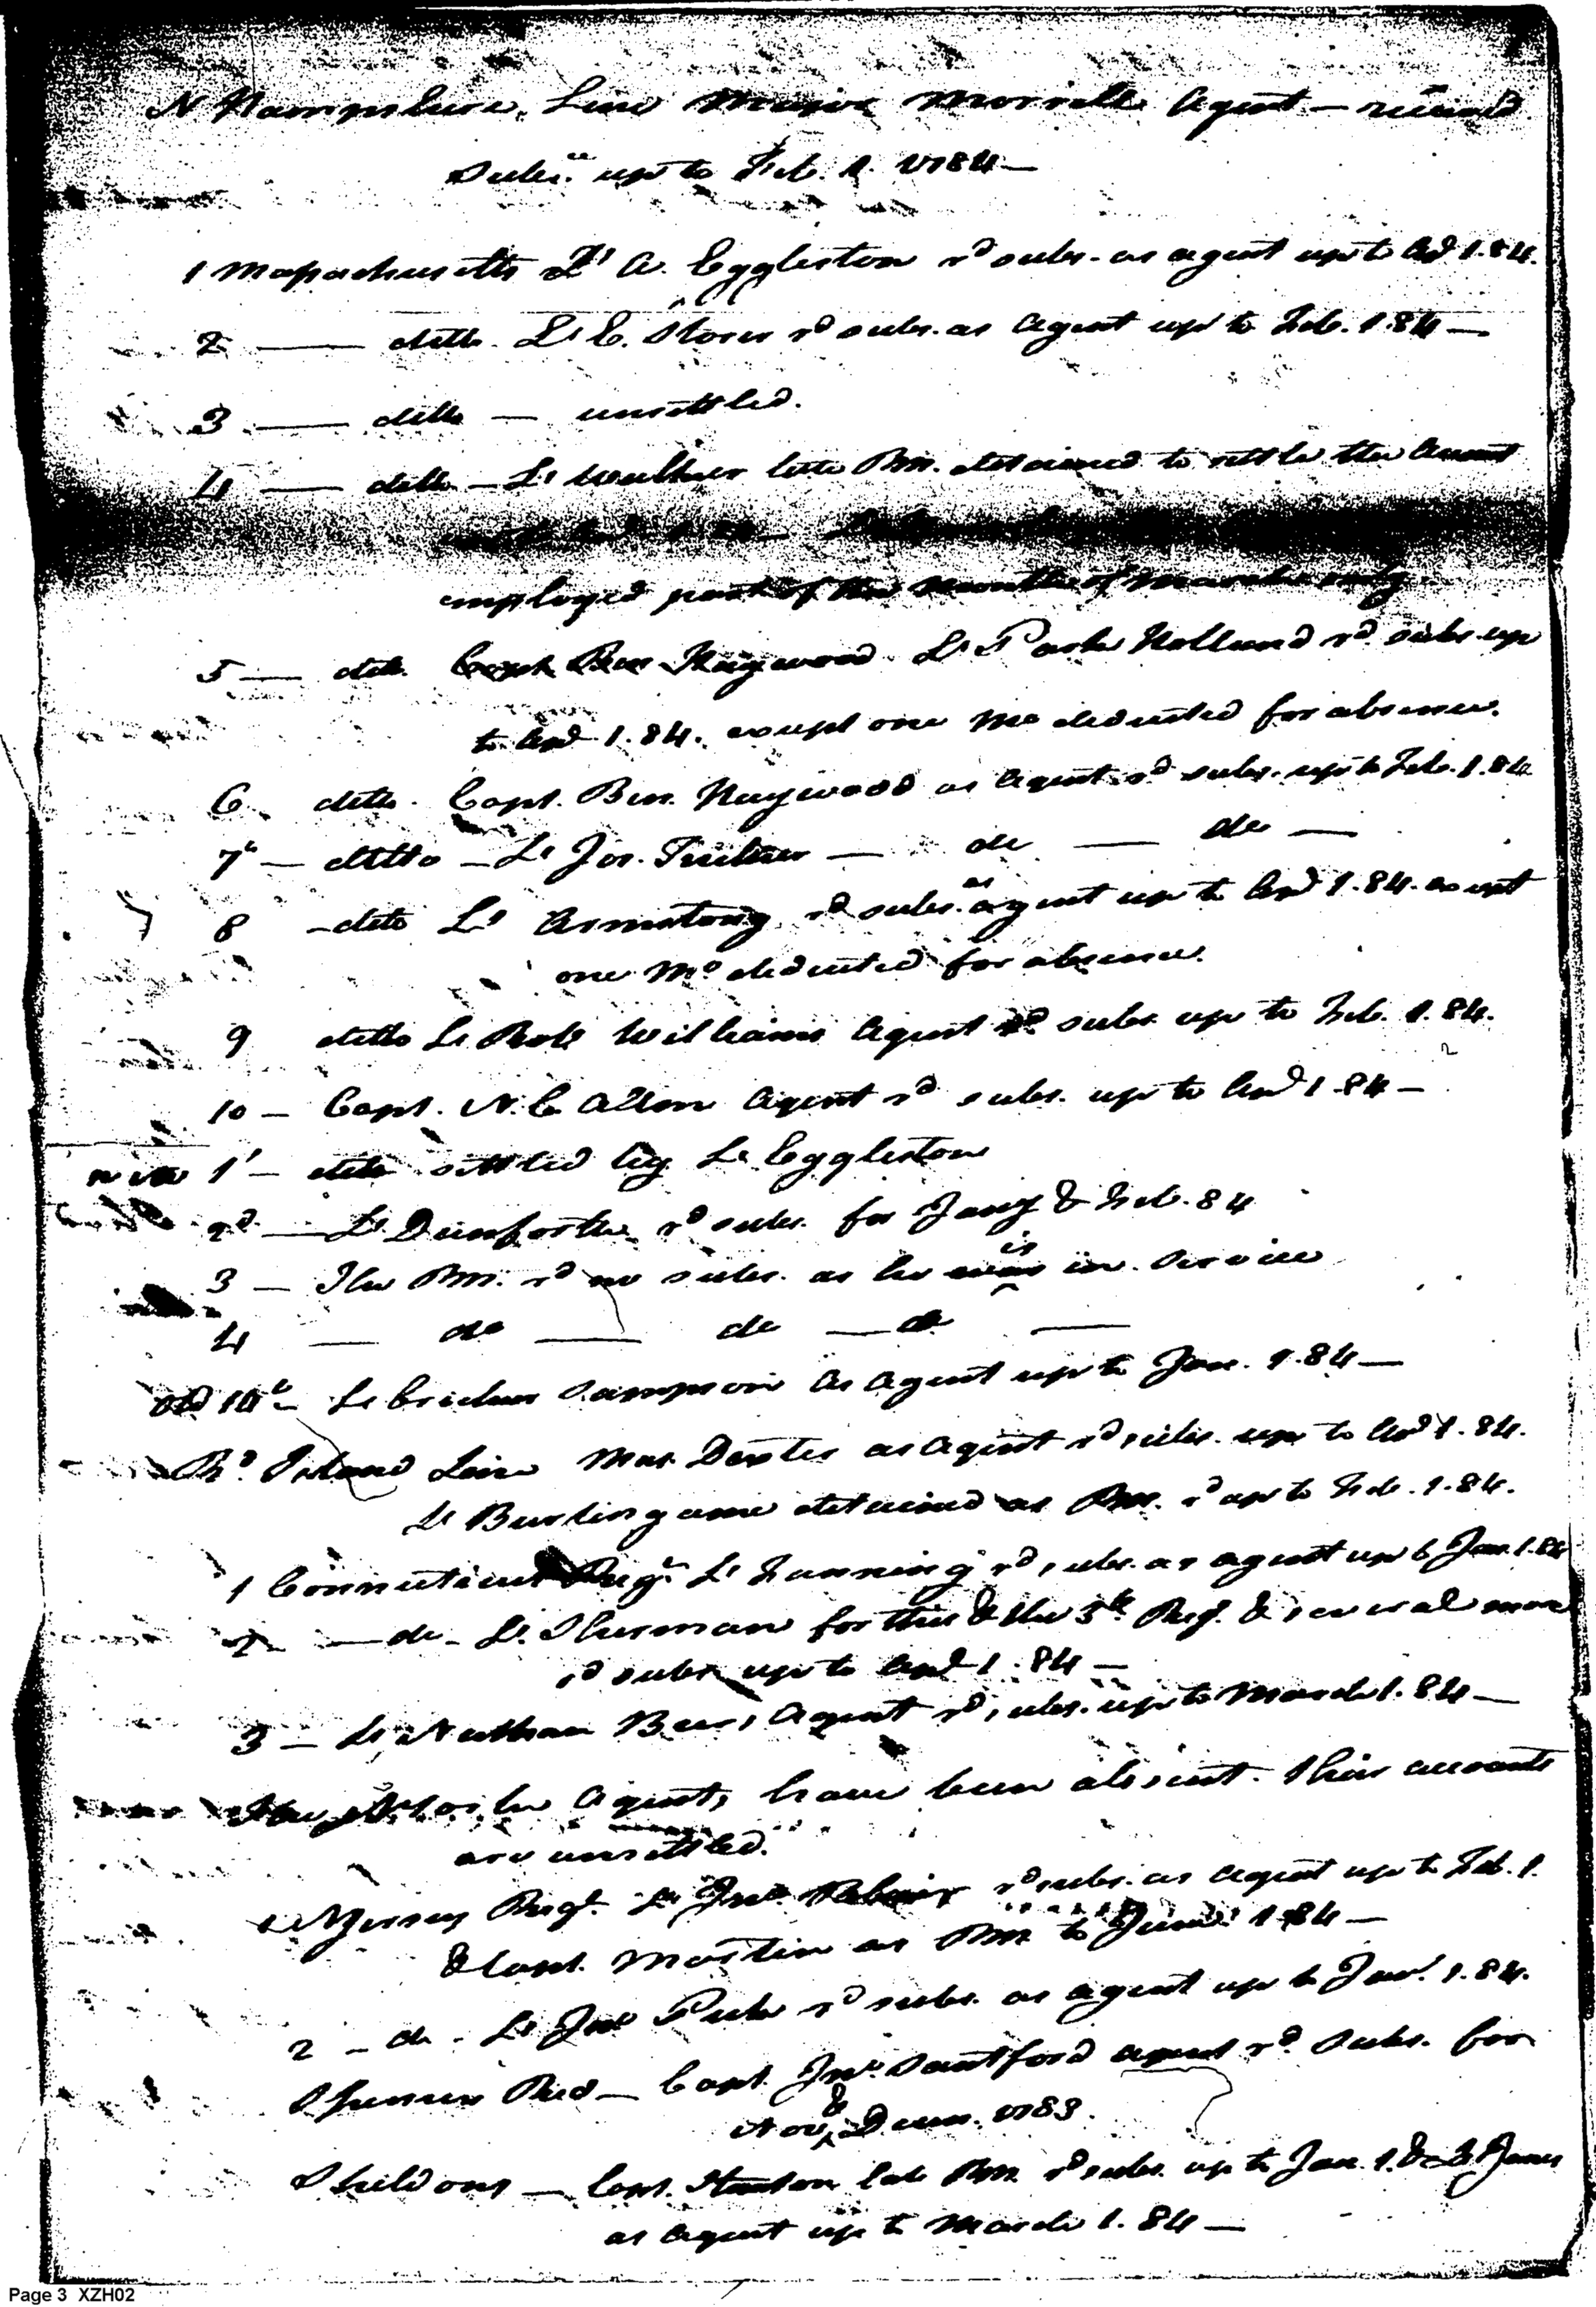 N Hampshire Line Major Morrill Agent — receivd
Subs.ce up to Feb. 1. 1784 —
1 Massachusetts Lt A. Eggleston rd subs. as agent up to Apl 1. 84.
2 — ditto. Lt E. Storer rd subs. as Agent up to Feb. 1. 84 —
3 — ditto — unsettled.
4 — ditto — Lt Walker late PM. detained to settle the Accout
employed part of the Month of March only
5 — ditto. Capt Ben Haywood Lt Park Holland rd subs. up
to Apl 1. 84. except one Mo deducted for absence.
6 ditto. Capt. Ben. Haywood as Agent rd subs. up to Feb. 1. 84
7th — ditto — Lt Jos. Tucker — do — do —
8 — ditto Lt Armstong rd subs. as agent up to Apl 1. 84. except
one Mo deducted for absence.
9 ditto Lt Robt Williams Agent rd subs. up to Feb. 1. 84.
10 — Capt. N. C. Allen Agent rd subs. up to Apl 1. 84 —
new 1t — ditto settled by Lt Eggleston
2d — Lt Danforth rd subs. for Jany & Feb. 84
3 — The PM. rd no subs. as he was is in Service
4 — do — do — do —
Old 10th — Lt Crocker Sampson as Agent up to Jan. 1. 84 —
Rd Island Line Maj. Dexter as Agent rd subs. up to Apl 1. 84.
Lt Burlingame detained as PM. rd up to Feb. 1. 84.
1 Connecticut Regt Lt Fanning rd subs. as agent up to Jan. 1. 84
2 — do — Lt Sherman for this & the 5th Regt. & several more
rd subs. up to Apl 1. 84 —
3 — Lt Nathan Beers Agent rd subs. up to March 1. 84 —
New York line Agents have been absent. Their accounts
are unsettled.
1 N Jersey Regt. Lt Jno. rd subs. as Agent up to Feb. 1.
& Capt. Martin as PM to June 1 84 —
2 — do — Lt Jno Peck rd subs. as agent up to Jany. 1. 84.
Spencers Regt — Capt. Jno. Santford agent rd. Subs. for
Nov & Decem. 1783.
Sheldons — Capt. Stanton late PM. rd subs. up to Jan. 1. &
as Agent up to March 1. 84 —
Page 3 XZH02